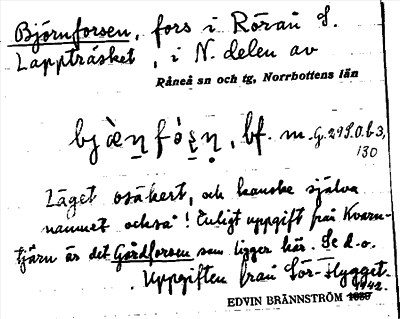 Björnforsen, fors i Råneå S.
Lappträsket, i N. delen av
Råneå sn och tg, Norrbottens län
bjæ̀ṇfȯ̀ṣṇ, bf. m. G. 29 S.O.b.3,
130
Läget osäkert, och kanske själva
namnet också! Enligt uppgift från Kvarn-
tjärn är det Gårdforsen som ligger här. Se d.o.
Uppgiften från Sör-Flygget.
1942.
EDVIN BRÄNNSTRÖM 1939